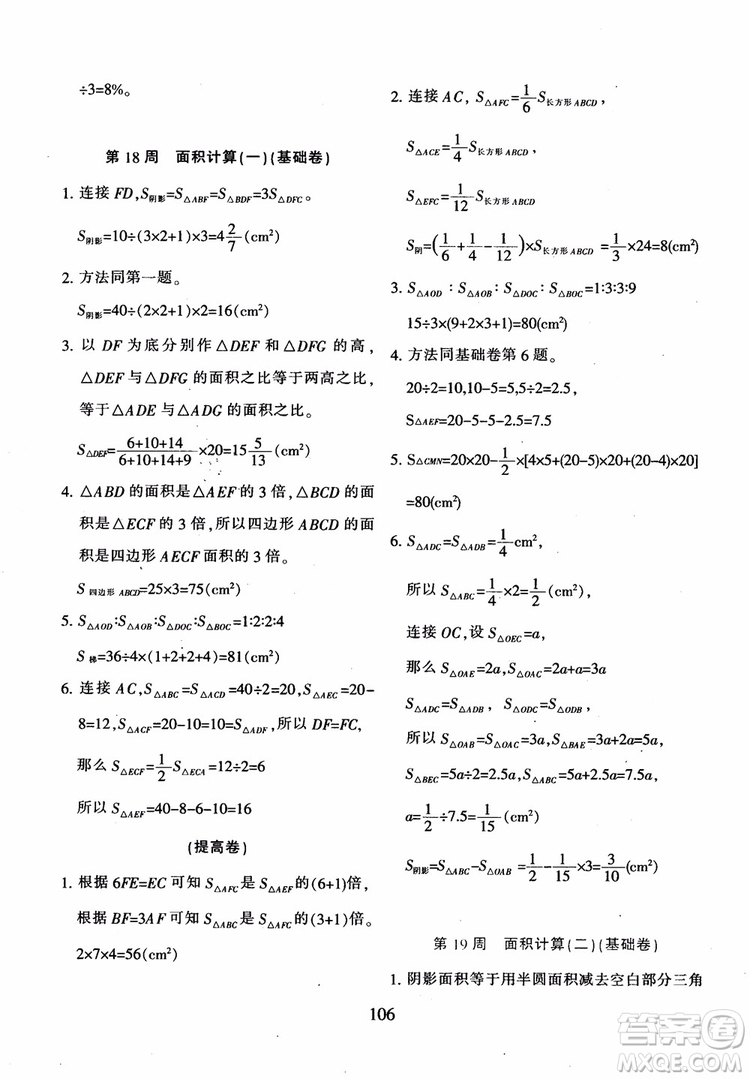 ÷3=8%。
第 18 周　面积计算(一)(基础卷)
1. 连接 FD,S阴影=S△ABF=S△BDF=3S△DFC。
S阴影=10÷(3×2+1)×3=4 2/7 (cm²)
2. 方法同第一题。
S阴影=40÷(2×2+1)×2=16(cm²)
3. 以 DF 为底分别作△DEF 和△DFG 的高,
△DEF 与△DFG 的面积之比等于两高之比,
等于△ADE 与△ADG 的面积之比。
S△DEF= (6+10+14)/(6+10+14+9) ×20=15 5/13 (cm²)
4. △ABD 的面积是△AEF 的 3 倍,△BCD 的面
积是△ECF 的 3 倍,所以四边形 ABCD 的面
积是四边形 AECF 面积的 3 倍。
S 四边形 ABCD=25×3=75(cm²)
5. S△AOD∶S△AOB∶S△DOC∶S△BOC=1∶2∶2∶4
S 梯=36÷4×(1+2+2+4)=81(cm²)
6. 连接 AC,S△ABC=S△ACD=40÷2=20,20-
8=12,S△ACF=20-10=10=S△ADF,所以 DF=FC,
那么 S△ECF= 1/2 S△ECA=12÷2=6
所以 S△AEF=40-8-6-10=16
(提高卷)
1. 根据 6FE=EC 可知 S△AFC是 S△AEF的(6+1)倍,
根据 BF=3AF 可知 S△ABC是 S△AFC的(3+1)倍。
2×7×4=56(cm²)
2. 连接 AC, S△AFC= 1/6 S长方形 ABCD,
S△ACE= 1/4 S长方形 ABCD,
S△EFC= 1/12 S长方形 ABCD
S阴=(1/6+1/4-1/12)×S长方形 ABCD= 1/3 ×24=8(cm²)
3. S△AOD∶S△AOB∶S△DOC∶S△BOC=1∶3∶3∶9
15÷3×(9+2×3+1)=80(cm²)
4. 方法同基础卷第 6 题。
20÷2=10,10-5=5,5÷2=2.5
S△AEF=20-5-5-2.5=7.5
5. S△CMN=20×20- 1/2 ×[4×5+(20-5)×20+(20-4)×20]
=80(cm²)
6. S△ADC=S△ADB= 1/4 (cm²),
所以 S△ABC= 1/4 ×2= 1/2 (cm²),
连接 OC,设 S△OEC=a,
那么 S△OAE=2a,S△OAC=2a+a=3a
S△ADC=S△ADB , S△ODC=S△ODB,
所以 S△OAB=S△OAC=3a,S△BAE=3a+2a=5a
S△BEC=5a÷2=2.5a,S△ABC=5a+2.5a=7.5a,
a= 1/2 ÷7.5= 1/15 (cm²)
S阴影=S△ABC-S△OAB = 1/2 - 1/15 ×3= 3/10 (cm²)
第 19 周　面积计算(二)(基础卷)
1. 阴影面积等于用半圆面积减去空白部分三角
106
答案圈
MXQE.COM